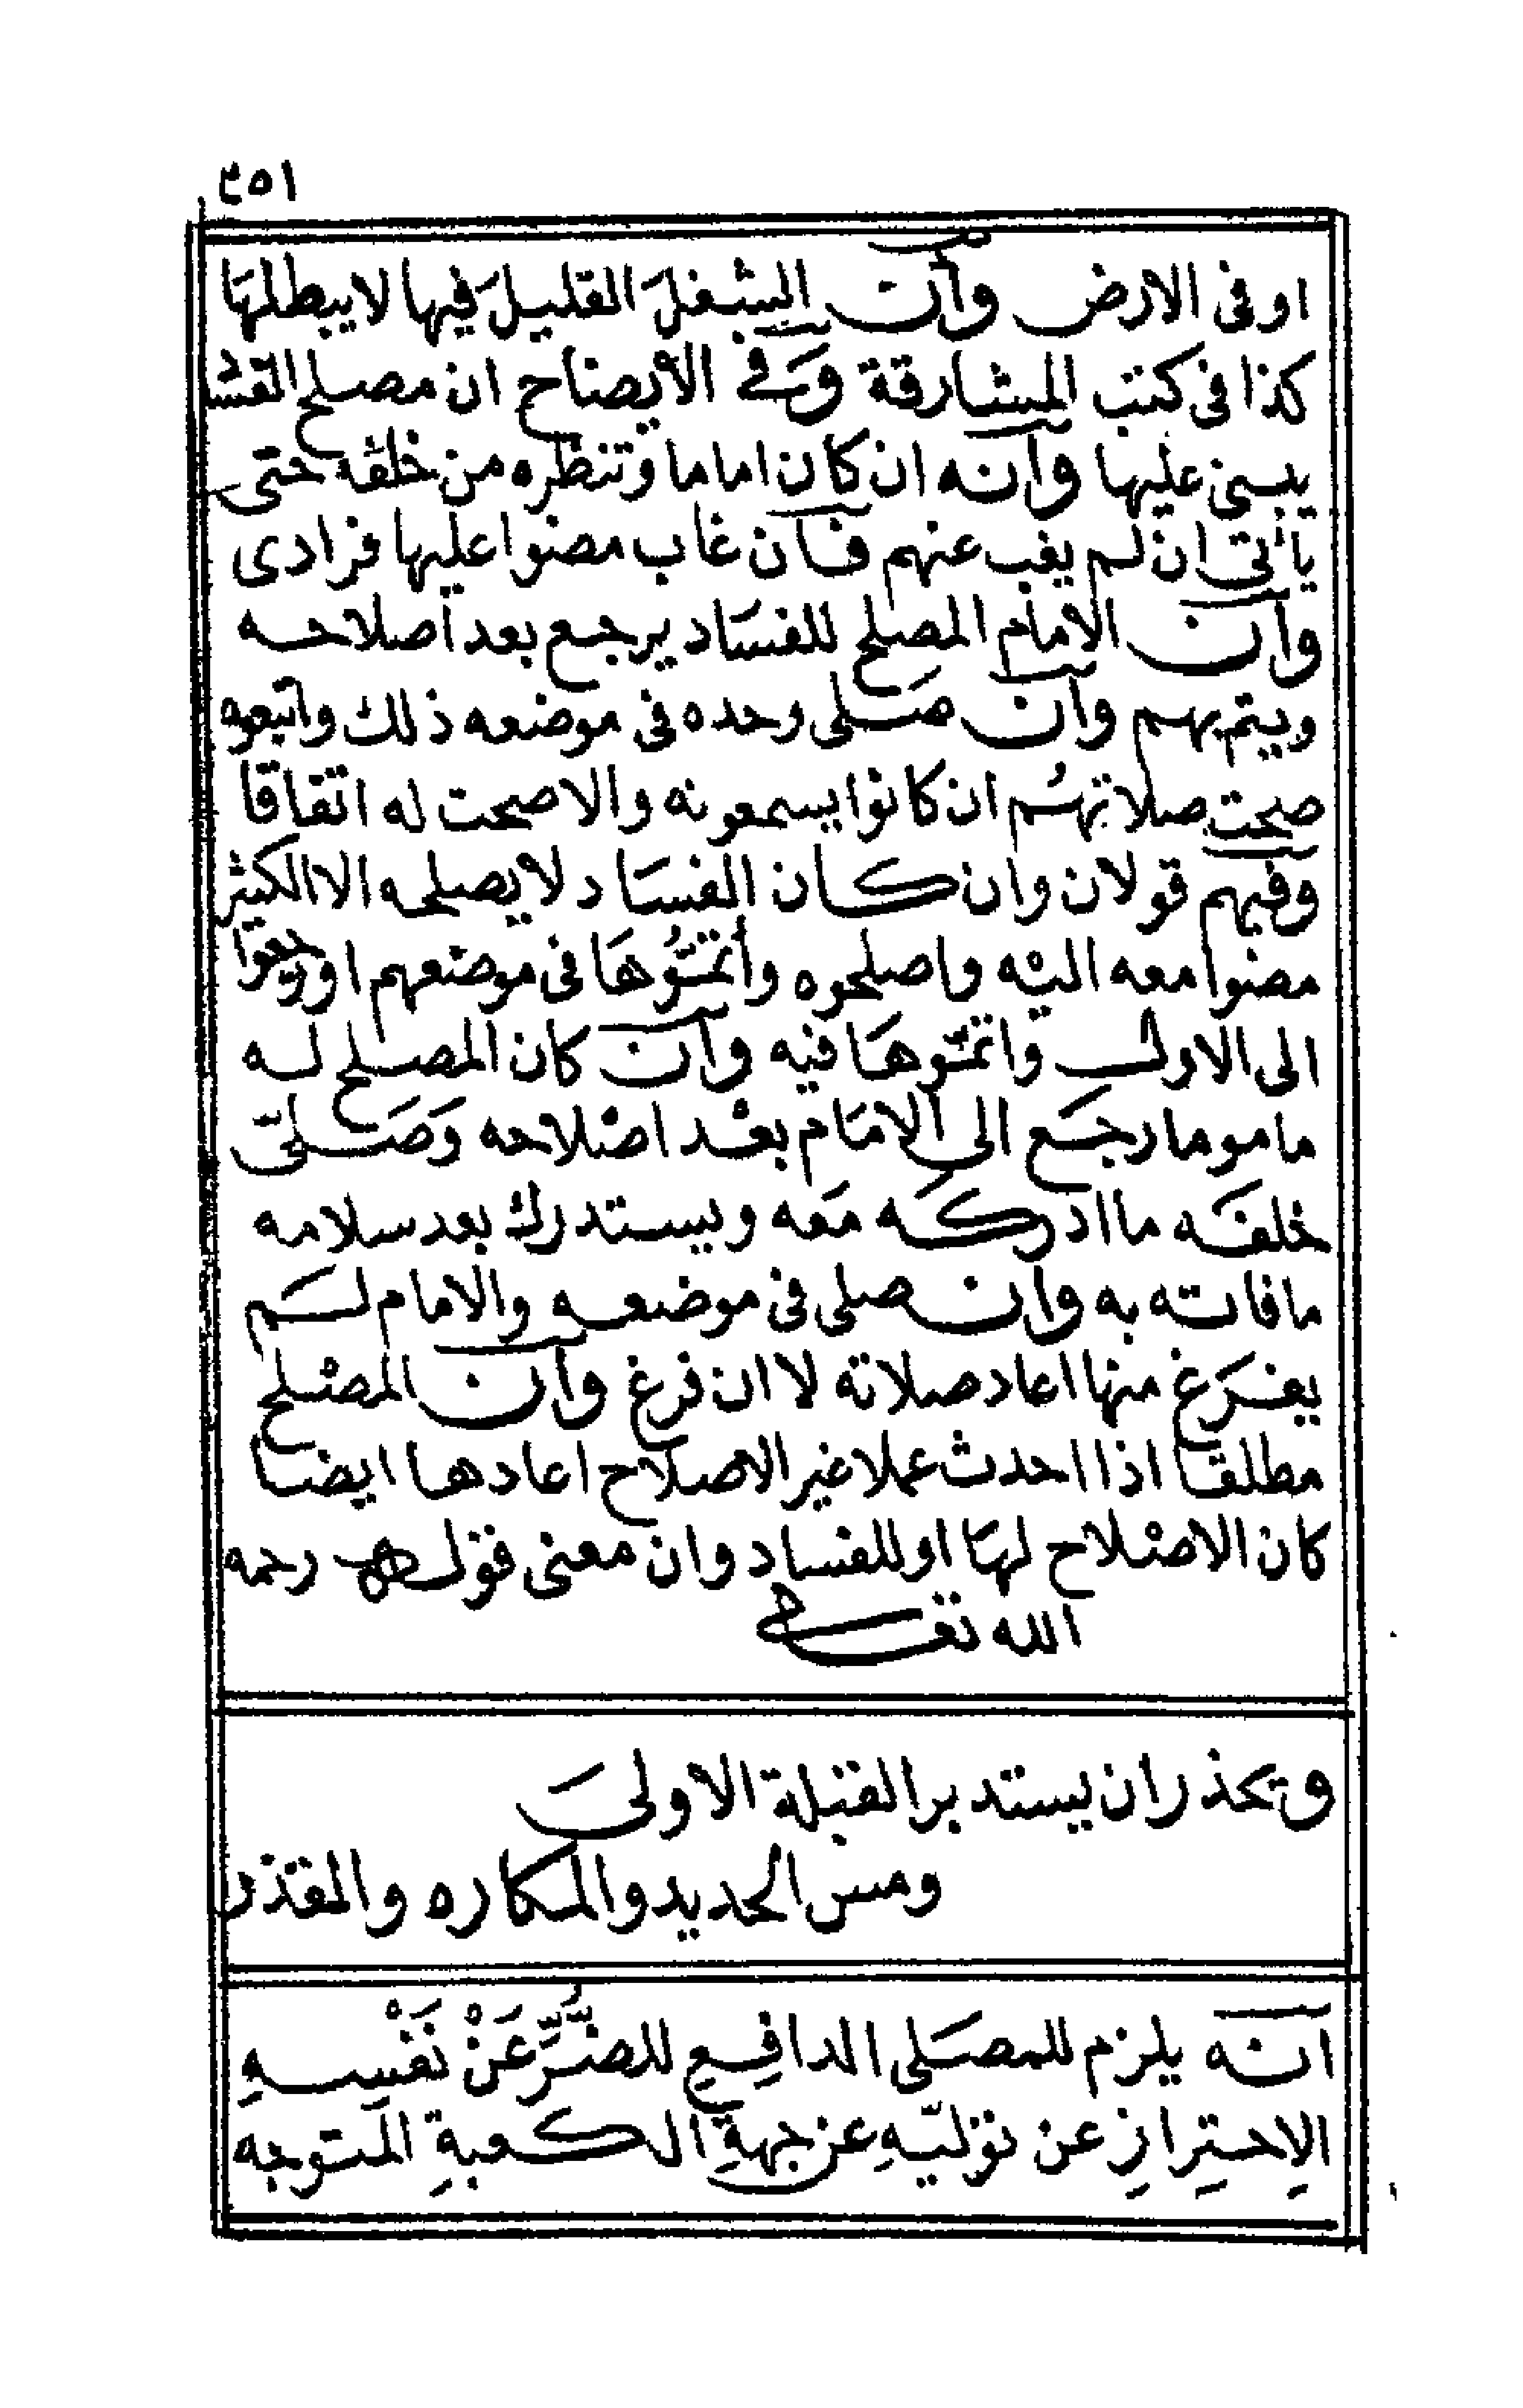 ٣٥١
او فى الارض وان الشغل القليل فيها لا يبطلها
كذا فى كتب المشارقة وفى الأيضاح ان مصلح الفسا
يبنى عليها وانه ان كان اماما وتنظره من خلفه حتى
يأتى ان لم يغب عنهم فان غاب مضوا عليها فرادى
وان الامام المصلح للفساد يرجع بعد اصلاحه
ويتم بهم وان صلى وحده فى موضعه ذلك واتبعوه
صحت صلاتهم ان كانوا يسمعونه والا صحت له اتفاقا
وفيهم قولان وان كان الفساد لا يصلحه الا الكثير
مضوا معه اليه واصلحوه وأتمُّوها فى موضعهم او رجعوا
الى الاول واتمّوها فيه وان كان المصلح له
ماموما رجع الى الامام بعد اصلاحه وصلى
خلفه ما ادركه معه ويستدرك بعد سلامه
ما فاته به وان صلى فى موضعه والامام لم
يفرغ منها اعاد صلاته لا ان فرغ وان المصلح
مطلقا اذا احدث عملا غير الاصلاح اعادها ايضا
كان الاصلاح لها او للفساد وان معنى قول رحمه
الله تعالى
وتحذر ان يستدبر القبلة الاولى
ومس الحديد والمكاره والمقذر
انه يلزم للمصلى الدافِعِ للضرِّ عَنْ نَفْسِهِ
الِاحتِرازِ عن توليّهِ عن جهةِ الكعبةِ المتوجه